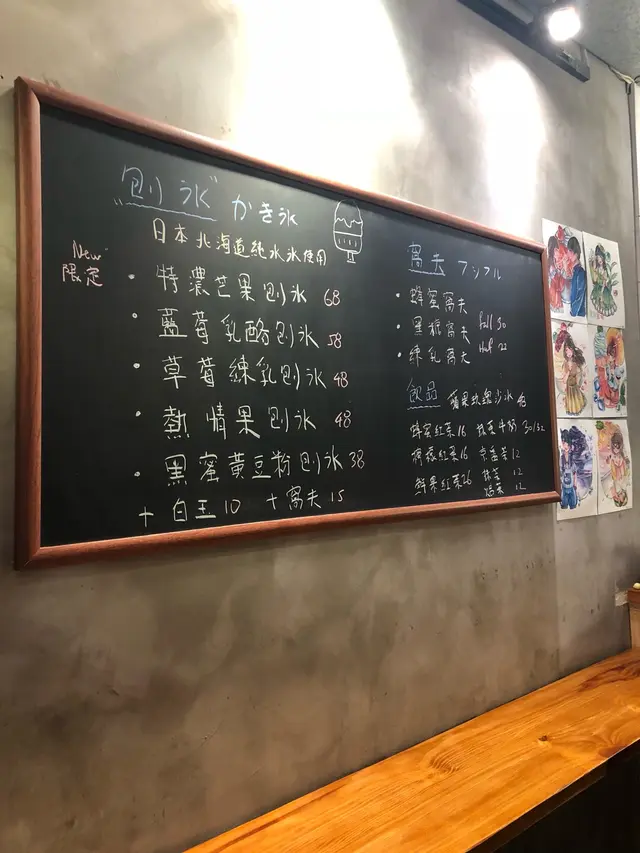 "刨冰" かき氷
日本北海道純水氷使用
New
限定
• 特濃芒果刨冰 68
• 藍莓乳酪刨冰 58
• 草莓練乳刨冰 48
• 熱情果刨冰 48
• 黑蜜黃豆粉刨冰 38
+ 白玉 10 + 窩夫 15
窩夫 ワッフル
• 蜂蜜窩夫
• 黑糖窩夫 full 30
• 練乳窩夫 Half 22
飲品 蘋果玫瑰沙冰 48
蜂蜜紅茶 16 抹茶牛奶 30/32
檸檬紅茶 16 12
鮮果紅茶 26 抹茶 12
12